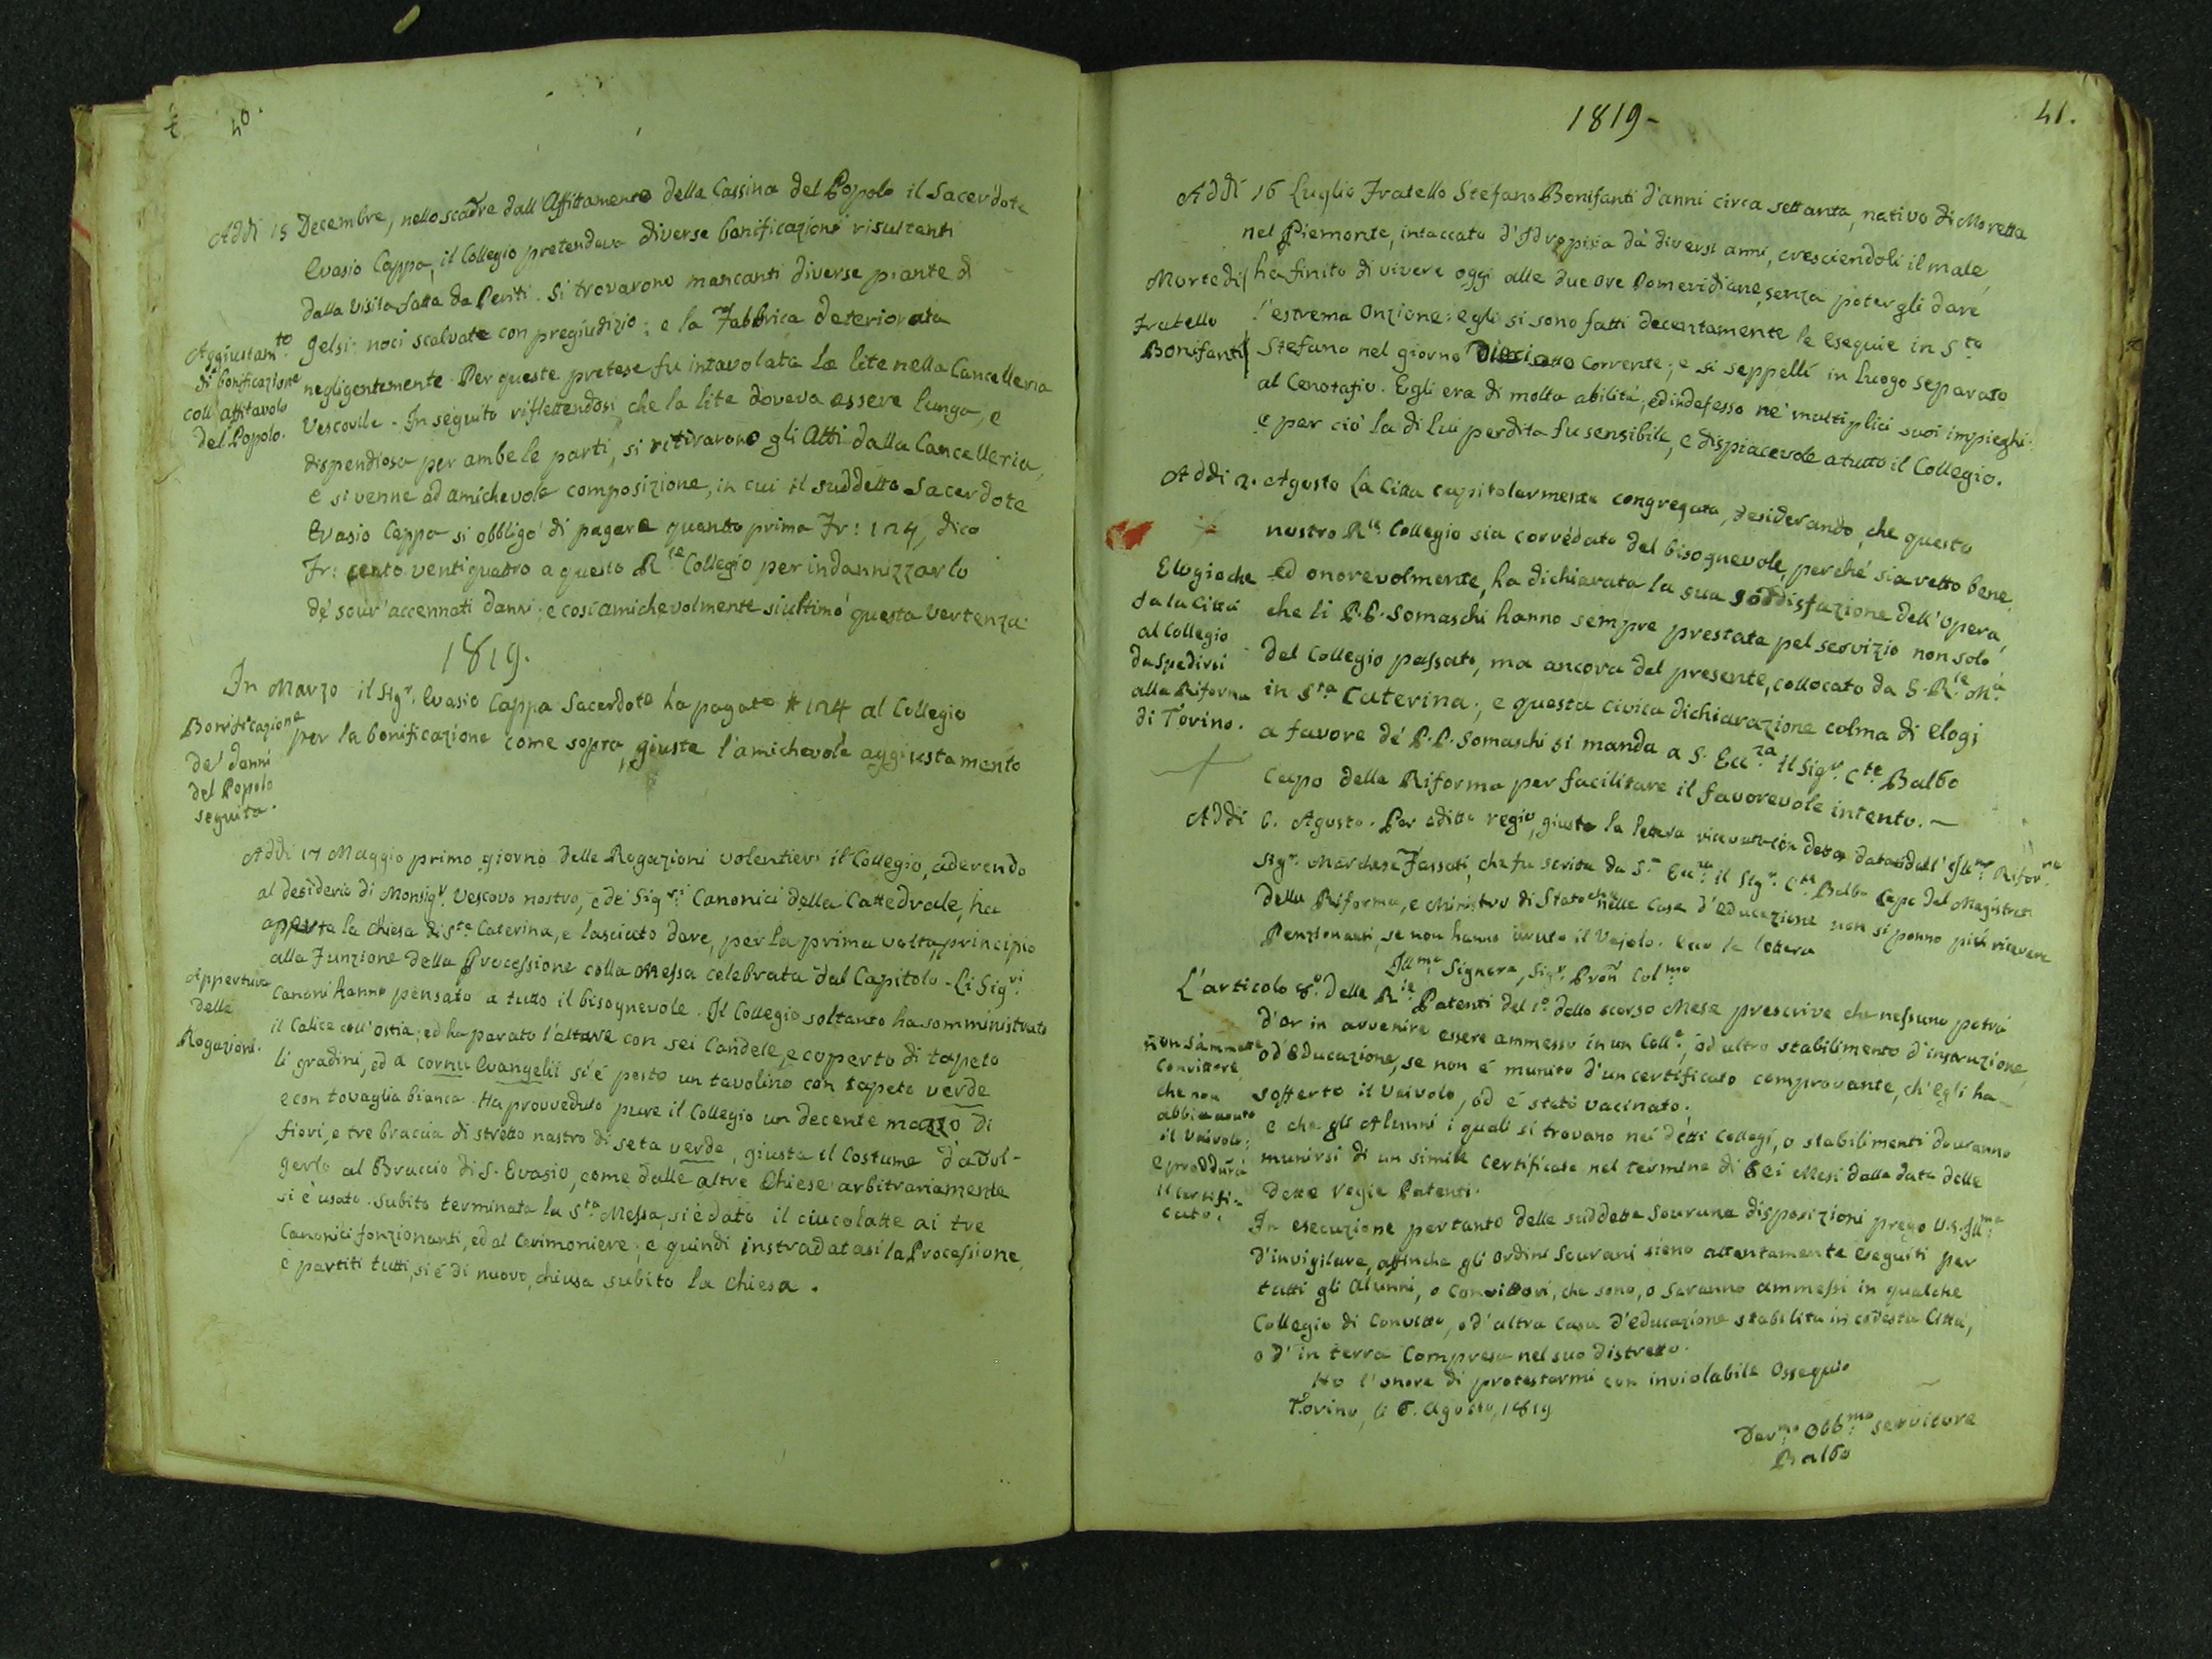 40.
Addì 15 Decembre, nello scadre dall'Affittamento della Cassina del Popolo il Sacerdote
Evasio Cappa, il Collegio pretendeva diverse bonificazioni risultanti
dalla visita fatta da Periti. Si trovarono mancanti diverse piante di
gelsi: noci scalvate con pregiudizio; e la Fabbrica deteriorata
negligentemente. Per queste pretese fu intavolata la lite nella Cancelleria
Vescovile. In seguito riflettendosi, che la lite doveva essere lunga, e
dispendiosa per ambe le parti, si ritirarono gli Atti dalla Cancelleria,
e si venne ad amichevole composizione, in cui il suddetto Sacerdote
Evasio Cappa si obbligò di pagare quanto prima Fr: 124, dico
Fr: cento ventiquattro a questo R.le Collegio per indannizzarlo
de' sovr'accennati danni; e così amichevolmente si ultimò questa vertenza.
Aggiustam.to
di bonificazione
coll'affitavolo
del Popolo.
1819.
In Marzo il Sig.r Evasio Cappa Sacerdote ha pagato 124 al Collegio
per la bonificazione come sopra, giusta l'amichevole aggiustamento
Bonificazione
de' danni
del Popolo
seguita.
Addì 17 Maggio primo giorno delle Rogazioni volentieri il Collegio, aderendo
al desiderio di Monsig.r Vescovo nostro, e de' Sig.ri Canonici della Cattedrale, ha
apperta la chiesa di S.ta Caterina, e lasciato dare, per la prima volta, principio
alla Funzione della Processione colla Messa celebrata dal Capitolo. Li Sig.ri
Canoni hanno pensato a tutto il bisognevole. Il Collegio soltanto ha somministrato
il Calice coll'ostia; ed ha parato l'altare con sei Candele, e coperto di tapeto
li gradini, ed a cornu Evangelii si è posto un tavolino con tapeto verde
e con tovaglia bianca. Ha provveduto pure il Collegio un decente mazzo di
fiori, e tre braccia di stretto nastro di seta verde, giusta il costume d'avol-
gerlo al Braccio di S. Evasio, come dalle altre Chiese arbitrariamente
si è usato. Subito terminata la S.ta Messa, si è dato il ciucolatte ai tre
Canonici fonzionanti, ed al Cerimoniere; e quindi instradatasi la Processione,
e partiti tutti, si è di nuovo, chiusa subito la chiesa.
Appertura
delle
Rogazioni.
1819-
41.
Addì 16 Luglio Fratello Stefano Bonifanti d'anni circa settanta, nativo di Moretta
nel Piemonte, intaccato d'Idropisia da diversi anni, cresciendoli il male,
ha finito di vivere oggi alle due ore Pomeridiane, senza poter gli dare
l'estrema Onzione: egli si sono fatti decentemente le esequie in S.to
Stefano nel giorno Dieciotto corrente; e si seppellì in luogo separato
al Cenotafio. Egli era di molta abilità, ed indefesso ne' multiplici suoi impieghi:
e per ciò la di lui perdita fu sensibile, e dispiacevole a tutto il Collegio.
Morte di
Fratello
Bonifanti
Addì 2. Agosto La Città capitolarmente congregata, desiderando, che questo
nostro R.le Collegio sia corvédato del bisognevole, perché sia retto bene,
ed onorevolmente, ha dichiarata la sua soddisfazione dell'opera,
che li P.P. Somaschi hanno sempre prestata pel servizio non solo
del Collegio passato, ma ancora del presente, collocato da S. R.le M.à
in S.ta Caterina; e questa civica dichiarazione colma di elogi
a favore de' P.P. Somaschi si manda a S. Ecc.za il Sig.r C.te Balbo
Capo della Riforma per facilitare il favorevole intento. –
Elogio che
fa la Città
al Collegio
da spedirsi
alla Riforma
di Torino.
Addì 6. Agosto. Per editto regio, giusta la lettera ricevuta dall'Ill.mo
Sig.r Marchese Fassati, che fu scritta da S. Ecc.za il Sig.r C.te Balbo Capo del Magistrato
della Riforma, e Ministro di Stato che nelle Case d'educazione non si ponno più ricevere
Penzionari, se non hanno avuto il Vajolo. Ecco la lettera
Ill.mo Signore, Sig.r Pron Col.mo
L'articolo 8.o delle R.ie Patenti del 1.o dello scorso Mese prescrive che nessuno potrà
d'or in avvenire essere ammesso in un Coll.o, od altro stabilimento d'instruzione,
od'educazione, se non é munito d'un certificato comprovante, ch'egli ha
sofferto il Vaivolo, od é stato vacinato;
e che gli Alunni i quali si trovano nei detti Collegi, o stabilimenti dovranno
munirsi di un simile certificato nel termine di sei Mesi dalla data delle
dette regie Patenti.
non s'ammette
Convittore
che non
abbia avuto
il Vaivolo;
e produrrà
il certifi-
cato.
In esecuzione pertanto delle suddette Sovrane disposizioni prego V.S. Ill.ma
d'invigilare, affinche gli ordini Sovrani sieno attentamente eseguiti per
tutti gli Alunni, o Convittori, che sono, o saranno ammessi in qualche
Collegio di Convitto, o d'altra casa d'educazione stabilita in codesta Città,
o d' in terra Compresa nel suo distretto.
Ho l'onore di protestarmi con inviolabile Ossequio
Torino, li 6. Agosto, 1819
Dev.mo Obb.mo servitore
Balbo